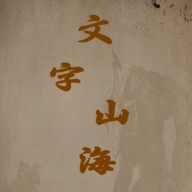 文字
山海